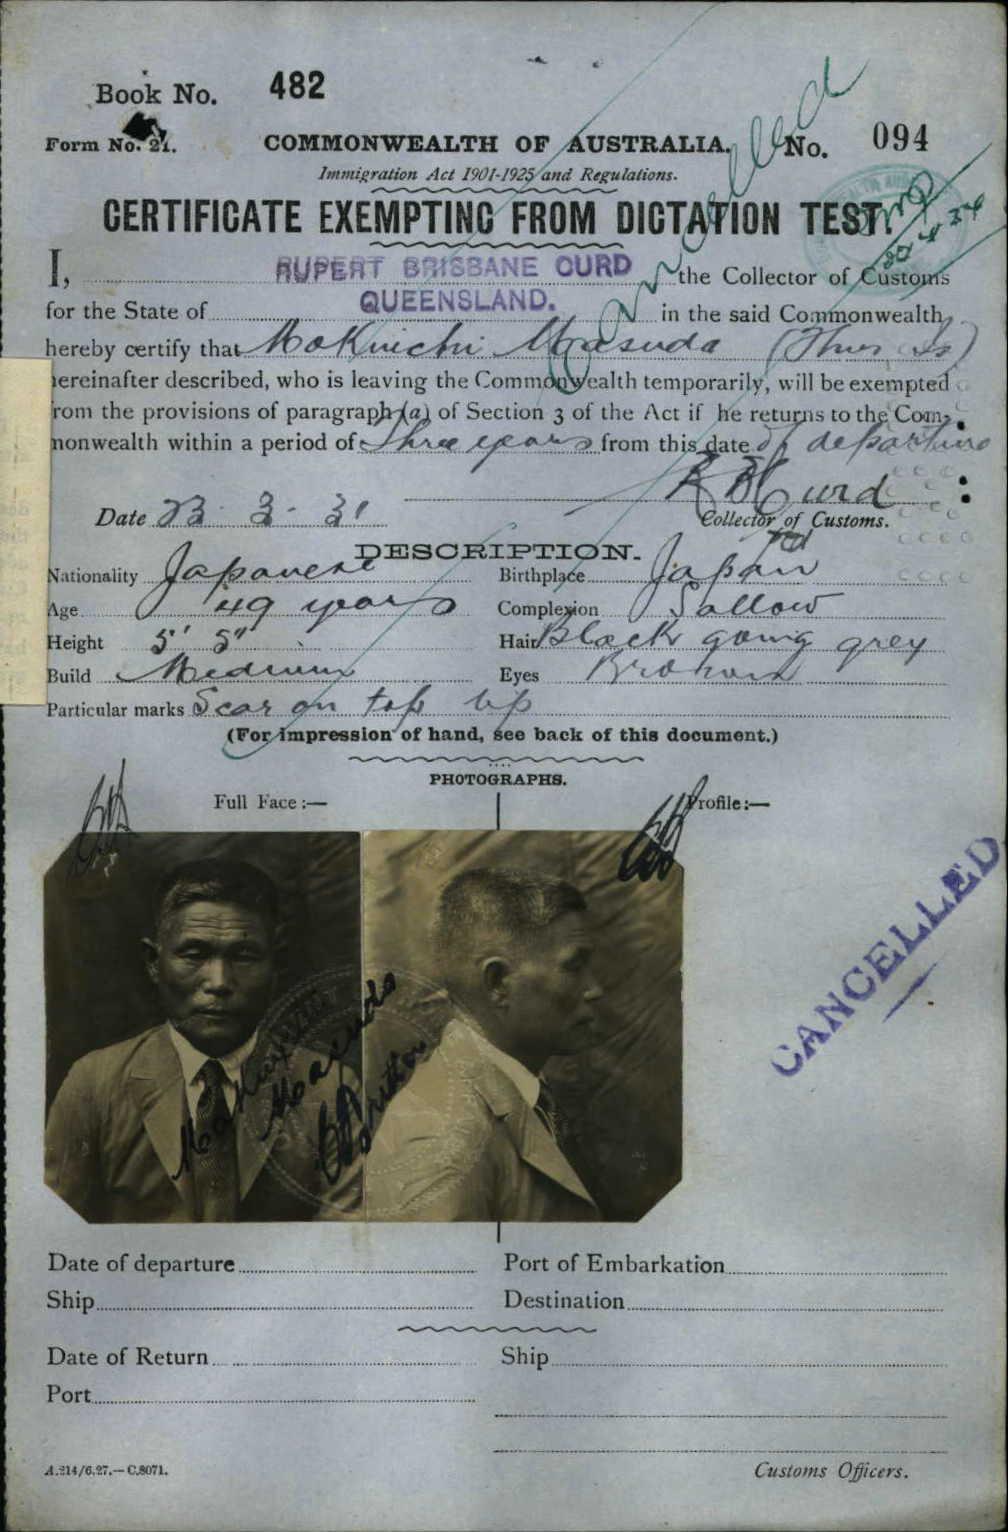 Book No. 482
Form No. 21. COMMONWEALTH OF AUSTRALIA. No. 094
Immigration Act 1901-1925 and Regulations.
CERTIFICATE EXEMPTING FROM DICTATION TEST.
Cancelled
20.4.34
I, RUPERT BRISBANE CURD the Collector of Customs
for the State of QUEENSLAND. in the said Commonwealth,
hereby certify that Mokuichi Masuda (Thurs Is)
hereinafter described, who is leaving the Commonwealth temporarily, will be exempted
from the provisions of paragraph (a) of Section 3 of the Act if he returns to the Com-
monwealth within a period of Three years from this date of departure
R B Curd
Date 23. 3. 31 Collector of Customs.
DESCRIPTION.
Nationality Japanese Birthplace Japan
Age 49 years Complexion Sallow
Height 5' 5" Hair Black going grey
Build Medium Eyes Brown
Particular marks Scar on top lip
(For impression of hand, see back of this document.)
PHOTOGRAPHS.
Full Face:— Profile:—
CANCELLED
Masuda
Date of departure Port of Embarkation
Ship Destination
Date of Return Ship
Port
A.214/6.27.—C.8071. Customs Officers.